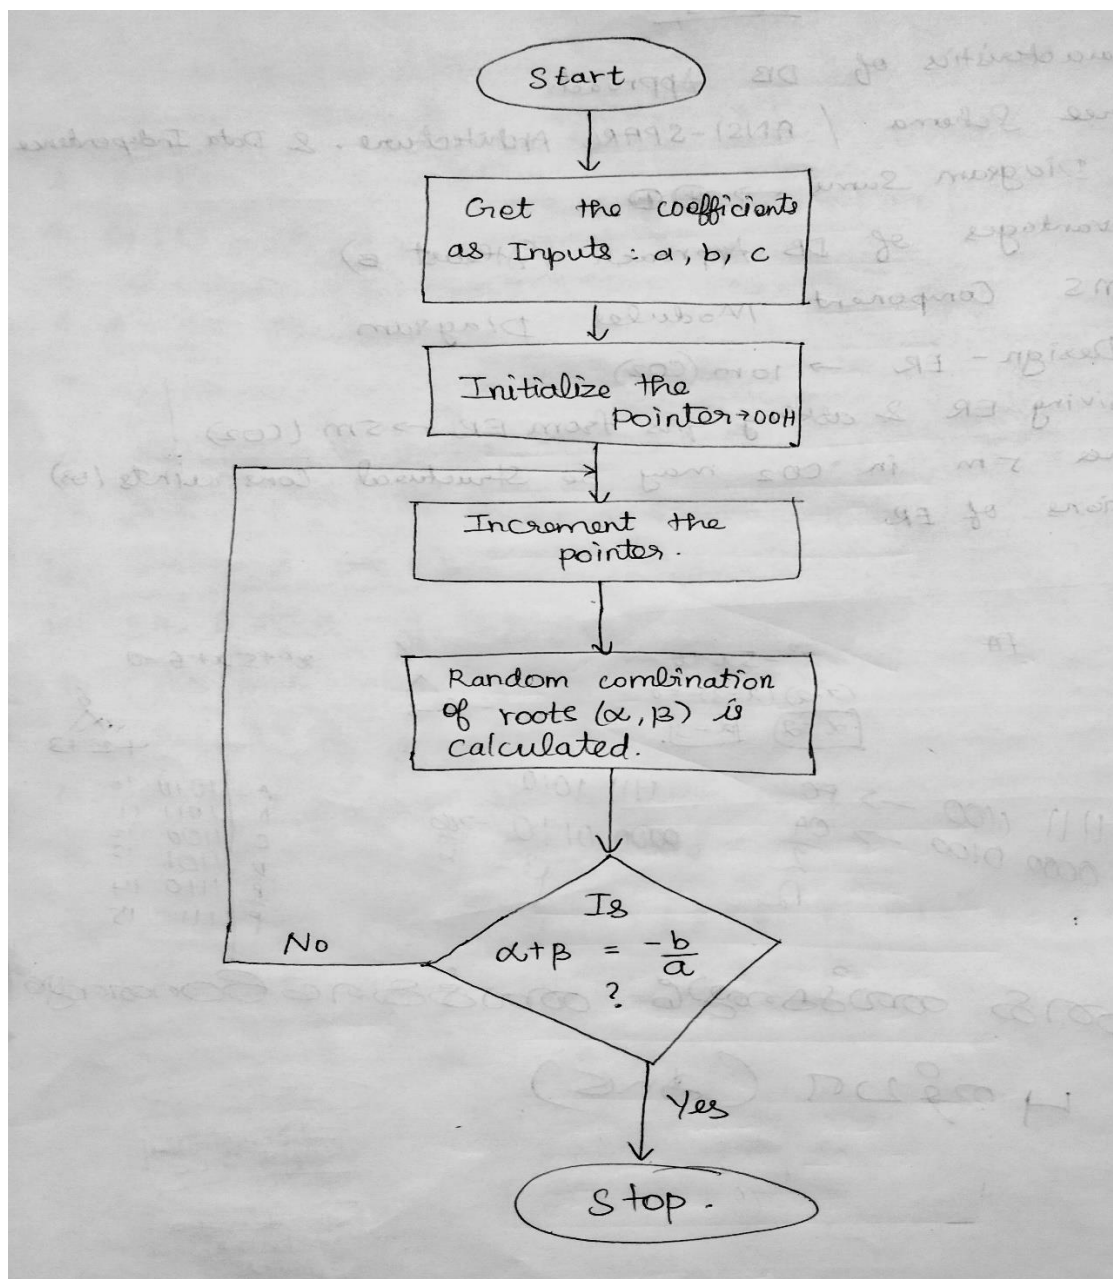 Start
Get the coefficients
as Inputs : a, b, c
Initialize the
pointer→00H
Increment the
pointer.
Random combination
of roots (α, β) is
calculated.
Is
α+β = -b/a
?
No
Yes
Stop.